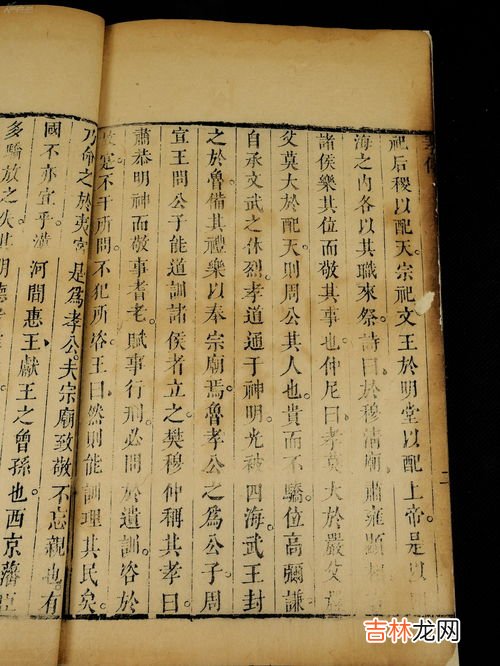 祀后稷以配天宗祀文王於明堂以配上帝是以
海之內各以其職來祭詩曰於穆清廟肅雍顯相
諸侯樂其位而敬其事也仲尼曰孝莫大於嚴父嚴
父莫大於配天則周公其人也貴而不驕位高彌謙
自承文武之休烈孝道通于神明光被四海武王封
之於魯備其禮樂以奉宗廟焉魯孝公之為公子周
宣王問公子能道訓諸侯者立之樊穆仲稱其孝曰
肅恭明神而敬事耇老賦事行刑必問於遺訓咨於
實不干所問不犯所咨王曰然則能訓理其民矣
乃命之於夷宮是為孝公夫宗廟致敬不忘親也有
國不亦宜乎漢河間惠王獻王之曾孫也西京藩
多驕放之失其明德
二
吉林龙网